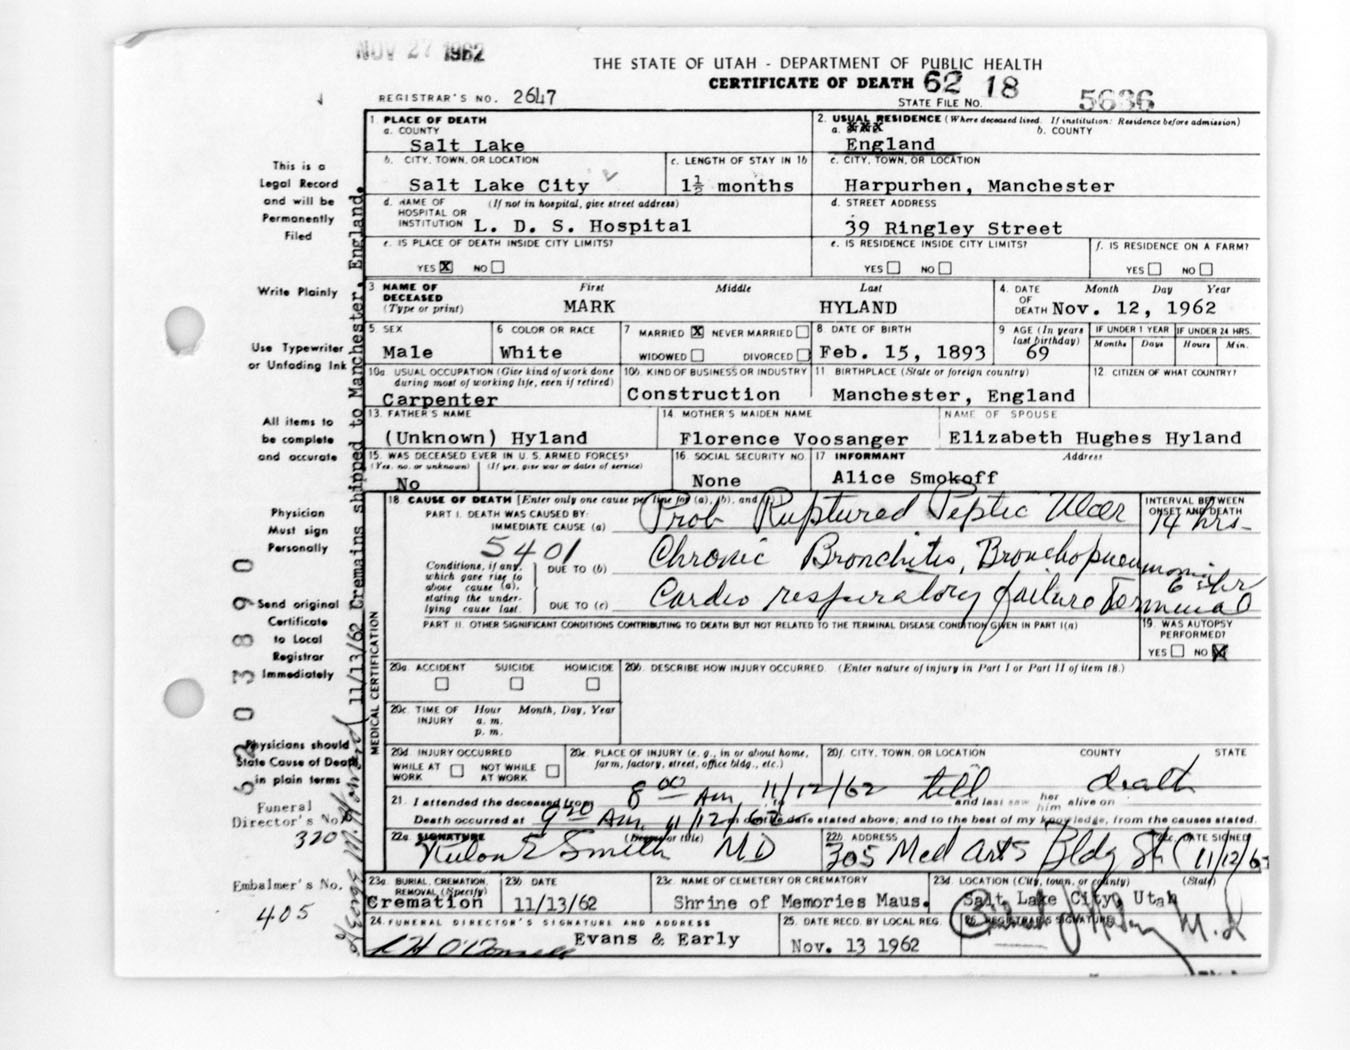 NOV 27 1962
THE STATE OF UTAH - DEPARTMENT OF PUBLIC HEALTH
CERTIFICATE OF DEATH 62 18
REGISTRAR'S NO. 2647
STATE FILE NO. 5636
1. PLACE OF DEATH
a. COUNTY
Salt Lake
2. USUAL RESIDENCE (Where deceased lived. If institution: Residence before admission)
a. xxx b. COUNTY
England
b. CITY, TOWN, OR LOCATION
Salt Lake City
c. LENGTH OF STAY IN 1b
1½ months
c. CITY, TOWN, OR LOCATION
Harpurhen, Manchester
d. NAME OF HOSPITAL OR INSTITUTION (If not in hospital, give street address)
L. D. S. Hospital
d. STREET ADDRESS
39 Ringley Street
e. IS PLACE OF DEATH INSIDE CITY LIMITS?
YES X NO
e. IS RESIDENCE INSIDE CITY LIMITS?
YES NO
f. IS RESIDENCE ON A FARM?
YES NO
3 NAME OF DECEASED (Type or print)
First Middle Last
MARK HYLAND
4. DATE OF DEATH Month Day Year
Nov. 12, 1962
5 SEX
Male
6 COLOR OR RACE
White
7 MARRIED X NEVER MARRIED
WIDOWED DIVORCED
8 DATE OF BIRTH
Feb. 15, 1893
9 AGE (In years last birthday)
69
IF UNDER 1 YEAR
Months Days
IF UNDER 24 HRS.
Hours Min.
10a. USUAL OCCUPATION (Give kind of work done during most of working life, even if retired)
Carpenter
10b. KIND OF BUSINESS OR INDUSTRY
Construction
11 BIRTHPLACE (State or foreign country)
Manchester, England
12. CITIZEN OF WHAT COUNTRY?
13. FATHER'S NAME
(Unknown) Hyland
14. MOTHER'S MAIDEN NAME
Florence Voosanger
NAME OF SPOUSE
Elizabeth Hughes Hyland
15. WAS DECEASED EVER IN U.S. ARMED FORCES?
(Yes, no, or unknown) (If yes, give war or dates of service)
No
16. SOCIAL SECURITY NO.
None
17 INFORMANT Address
Alice Smokoff
18. CAUSE OF DEATH [Enter only one cause per line for (a), (b), and (c).]
PART I. DEATH WAS CAUSED BY:
IMMEDIATE CAUSE (a) Prob Ruptured Peptic Ulcer
INTERVAL BETWEEN ONSET AND DEATH
14 hrs-
5401
Conditions, if any, which gave rise to above cause (a), stating the underlying cause last.
DUE TO (b) Chronic Bronchitis, Bronchopneumonia
DUE TO (c) Cardio respiratory failure Terminal
PART II. OTHER SIGNIFICANT CONDITIONS CONTRIBUTING TO DEATH BUT NOT RELATED TO THE TERMINAL DISEASE CONDITION GIVEN IN PART I(a)
19. WAS AUTOPSY PERFORMED?
YES NO X
20a. ACCIDENT SUICIDE HOMICIDE
20b. DESCRIBE HOW INJURY OCCURRED. (Enter nature of injury in Part I or Part II of item 18.)
20c. TIME OF INJURY Hour Month, Day, Year
a. m.
p. m.
20d. INJURY OCCURRED
WHILE AT WORK NOT WHILE AT WORK
20e. PLACE OF INJURY (e. g., in or about home, farm, factory, street, office bldg., etc.)
20f. CITY, TOWN, OR LOCATION COUNTY STATE
21. I attended the deceased from 8 00 Am, 11/12/62 till death and last saw her him alive on
Death occurred at 9 20 Am, 11/12/62 on the date stated above; and to the best of my knowledge, from the causes stated.
22a. SIGNATURE (Degree or title)
Rulon E Smith MD
22b. ADDRESS
305 Med Arts Bldg
22c. DATE SIGNED
11/12/62
23a. BURIAL, CREMATION, REMOVAL (Specify)
Cremation
23b. DATE
11/13/62
23c. NAME OF CEMETERY OR CREMATORY
Shrine of Memories Maus.
23d. LOCATION (City, town, or county) (State)
Salt Lake City, Utah
24. FUNERAL DIRECTOR'S SIGNATURE AND ADDRESS
Evans & Early
25. DATE RECD. BY LOCAL REG.
Nov. 13 1962
26. REGISTRAR'S SIGNATURE
This is a
Legal Record
and will be
Permanently
Filed
Write Plainly
Use Typewriter
or Unfading Ink
All items to
be complete
and accurate
Physician
Must sign
Personally
Send original
Certificate
to Local
Registrar
Immediately
Physicians should
State Cause of Death
in plain terms
Funeral
Director's No.
320
Embalmer's No.
405
6203890
11/13/62 Cremains shipped to Manchester, England.
MEDICAL CERTIFICATION